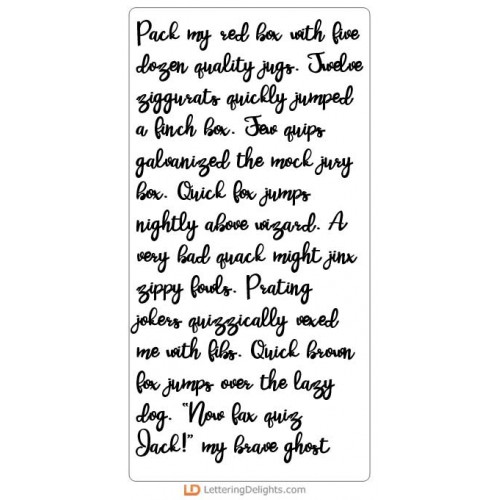 Pack my red box with five
dozen quality jugs. Twelve
ziggurats quickly jumped
a finch box. Few quips
galvanized the mock jury
box. Quick fox jumps
nightly above wizard. A
very bad quack might jinx
zippy fowls. Prating
jokers quizzically vexed
me with fibs. Quick brown
fox jumps over the lazy
dog. "Now fax quiz
Jack!" my brave ghost
LD LetteringDelights.com